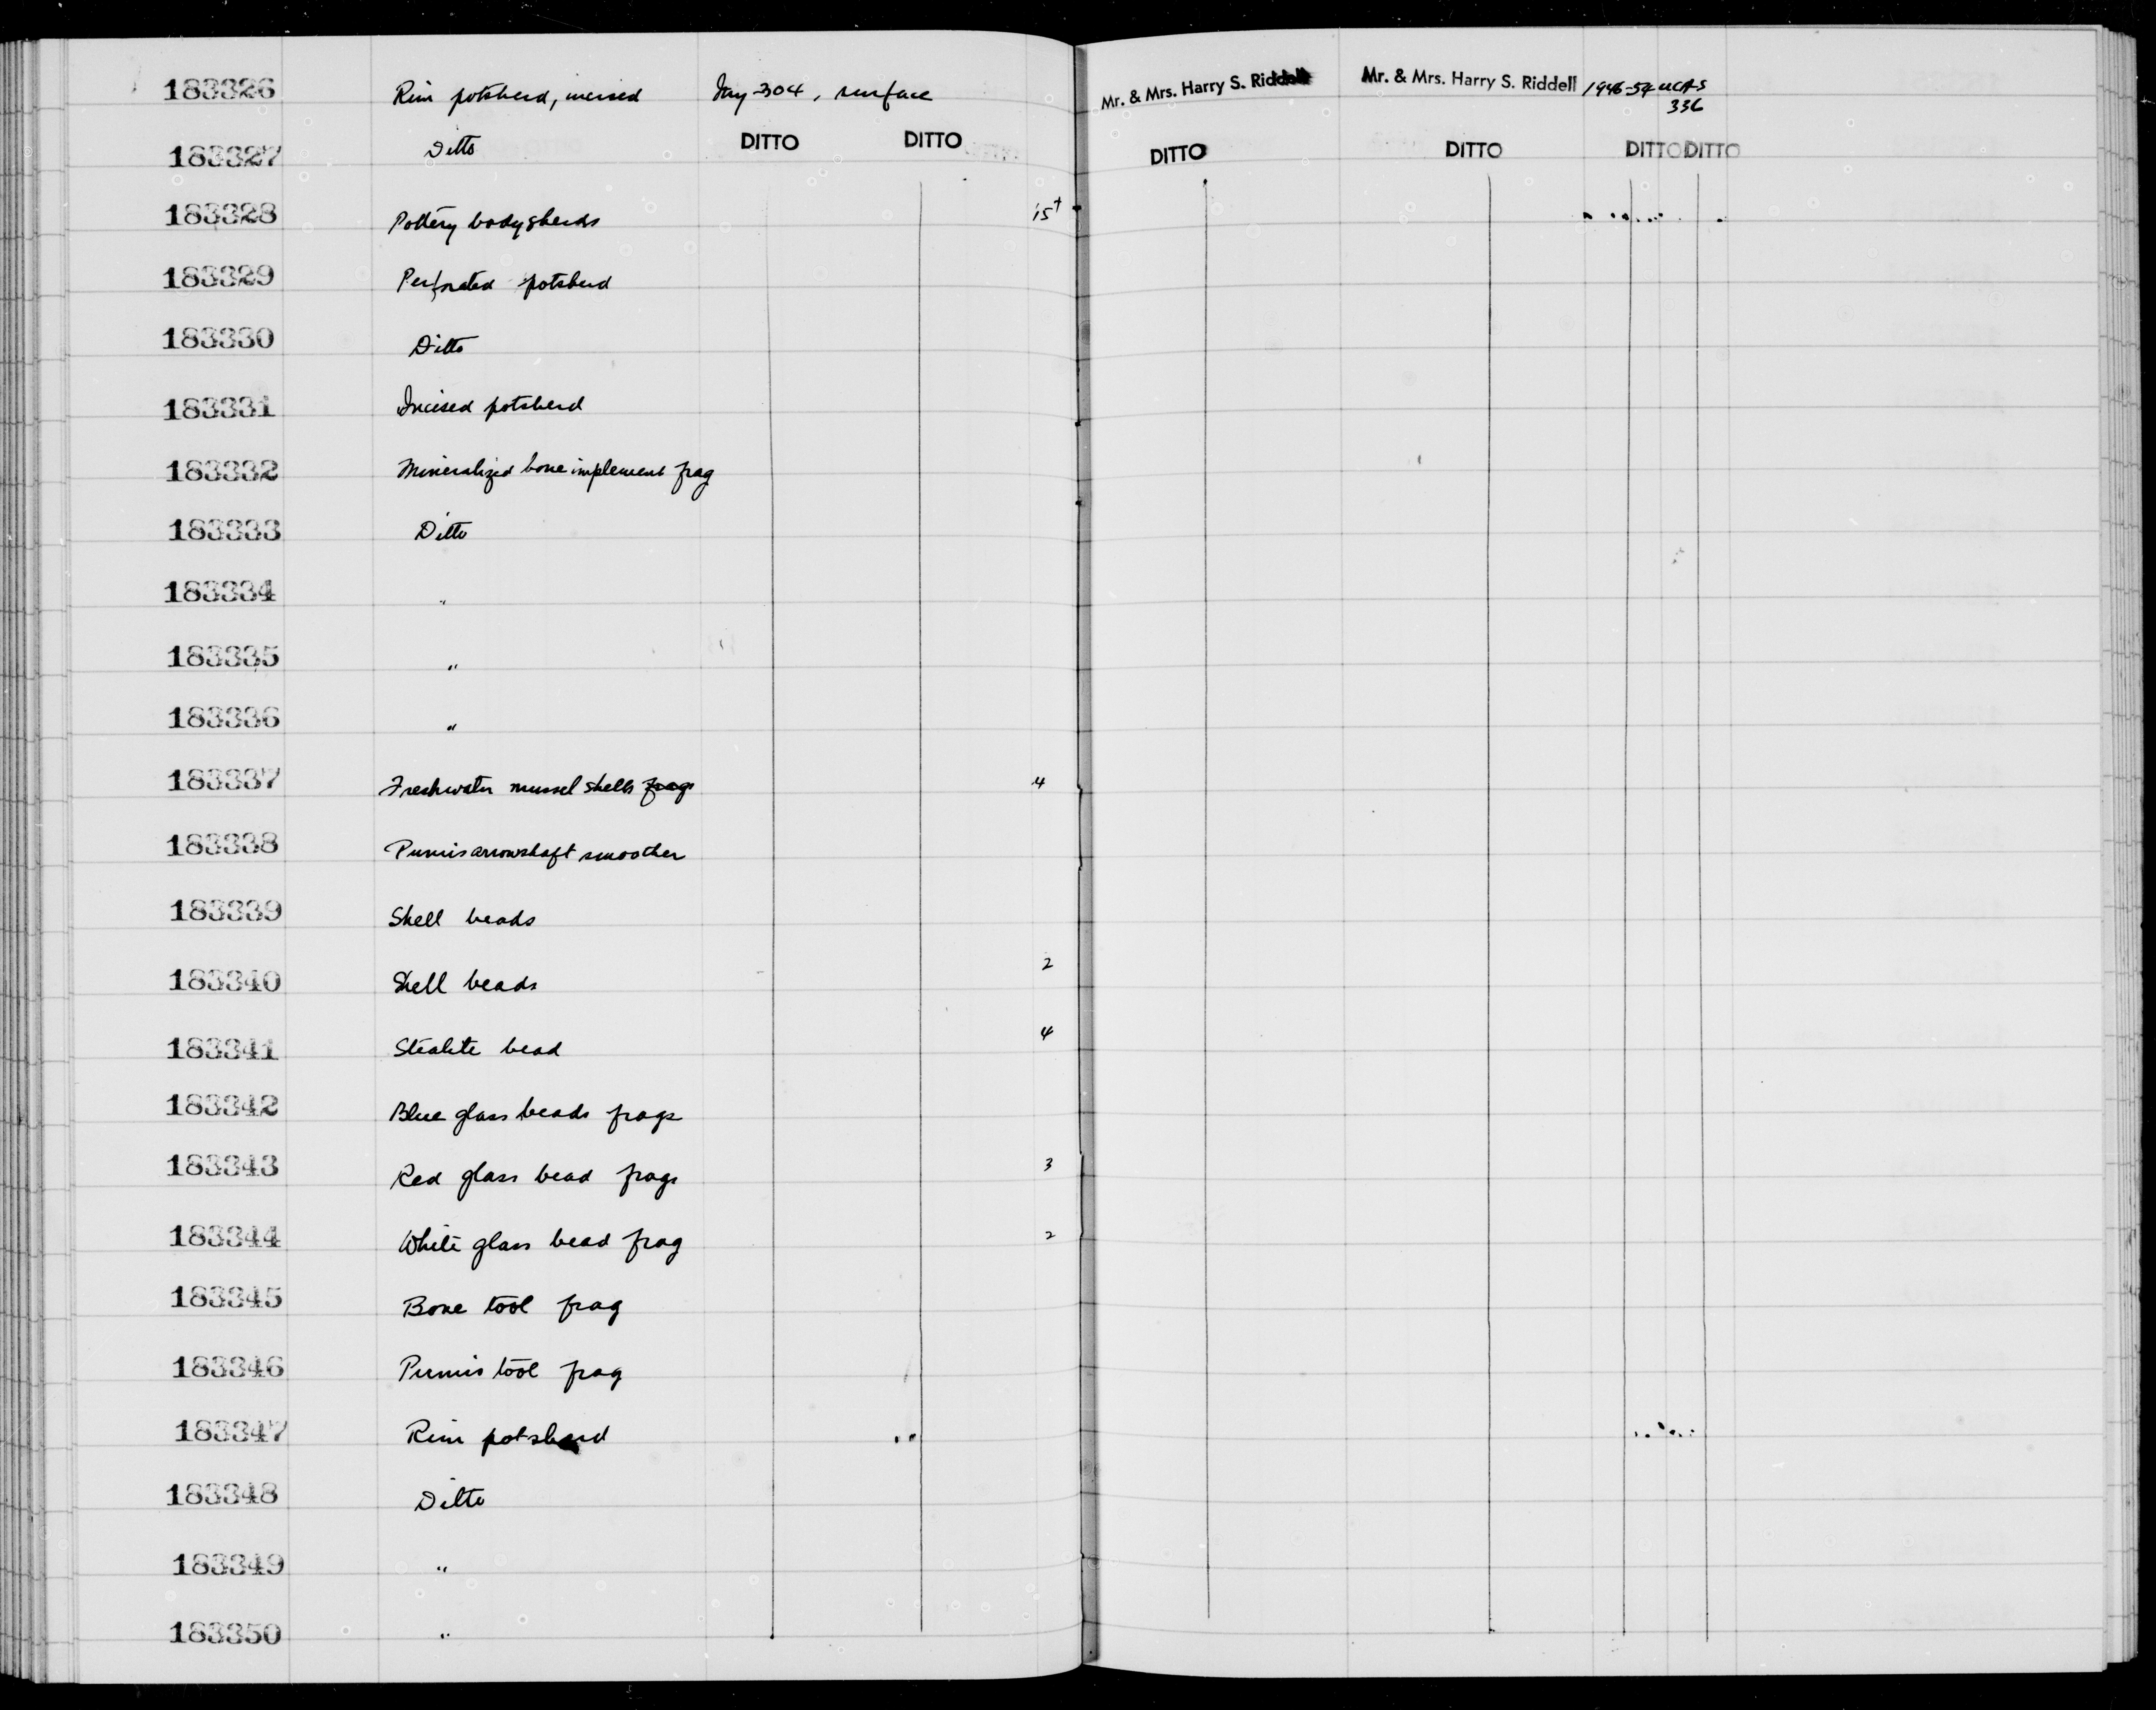 183326 Rim potsherd, incised Iny-304, surface Mr. & Mrs. Harry S. Riddell Mr. & Mrs. Harry S. Riddell 1946-54 UCAS
336
183327 Ditto DITTO DITTO DITTO DITTO DITTO DITTO
183328 Pottery bodysherds 15+
183329 Perforated potsherd
183330 Ditto
183331 Incised potsherd
183332 Mineralized bone implement frag
183333 Ditto
183334 "
183335 "
183336 "
183337 Freshwater mussel shells frags 4
183338 Pumis arrowshaft smoother
183339 Shell beads
183340 Shell beads 2
183341 Steatite bead 4
183342 Blue glass beads frags
183343 Red glass bead frags 3
183344 White glass bead frag 2
183345 Bone tool frag
183346 Pumis tool frag
183347 Rim potsherd
183348 Ditto
183349 "
183350 "